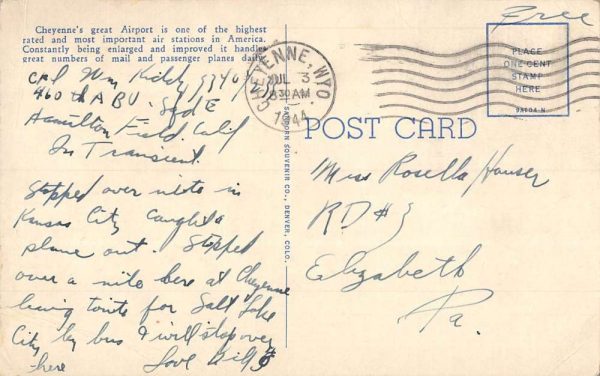 Cheyenne's great Airport is one of the highest
rated and most important air stations in America.
Constantly being enlarged and improved it handles
great numbers of mail and passenger planes daily.
Cpl Wm
460th A B U. Sqd E
Hamilton Field. Calif
In Transient.
Stopped over nite in
Kansas City Caught a
plane out. Stopped
over a nite here at Cheyenne
leaving tonite for Salt Lake
City by bus I will stop over
here Love Bill
SANBORN SOUVENIR CO., DENVER, COLO.
CHEYENNE, WYO.
JUL 3
830AM
1944
Free
PLACE
ONE CENT
STAMP
HERE
POST CARD
Miss Rosella Hauser
RD # 3
Elizabeth
Pa.